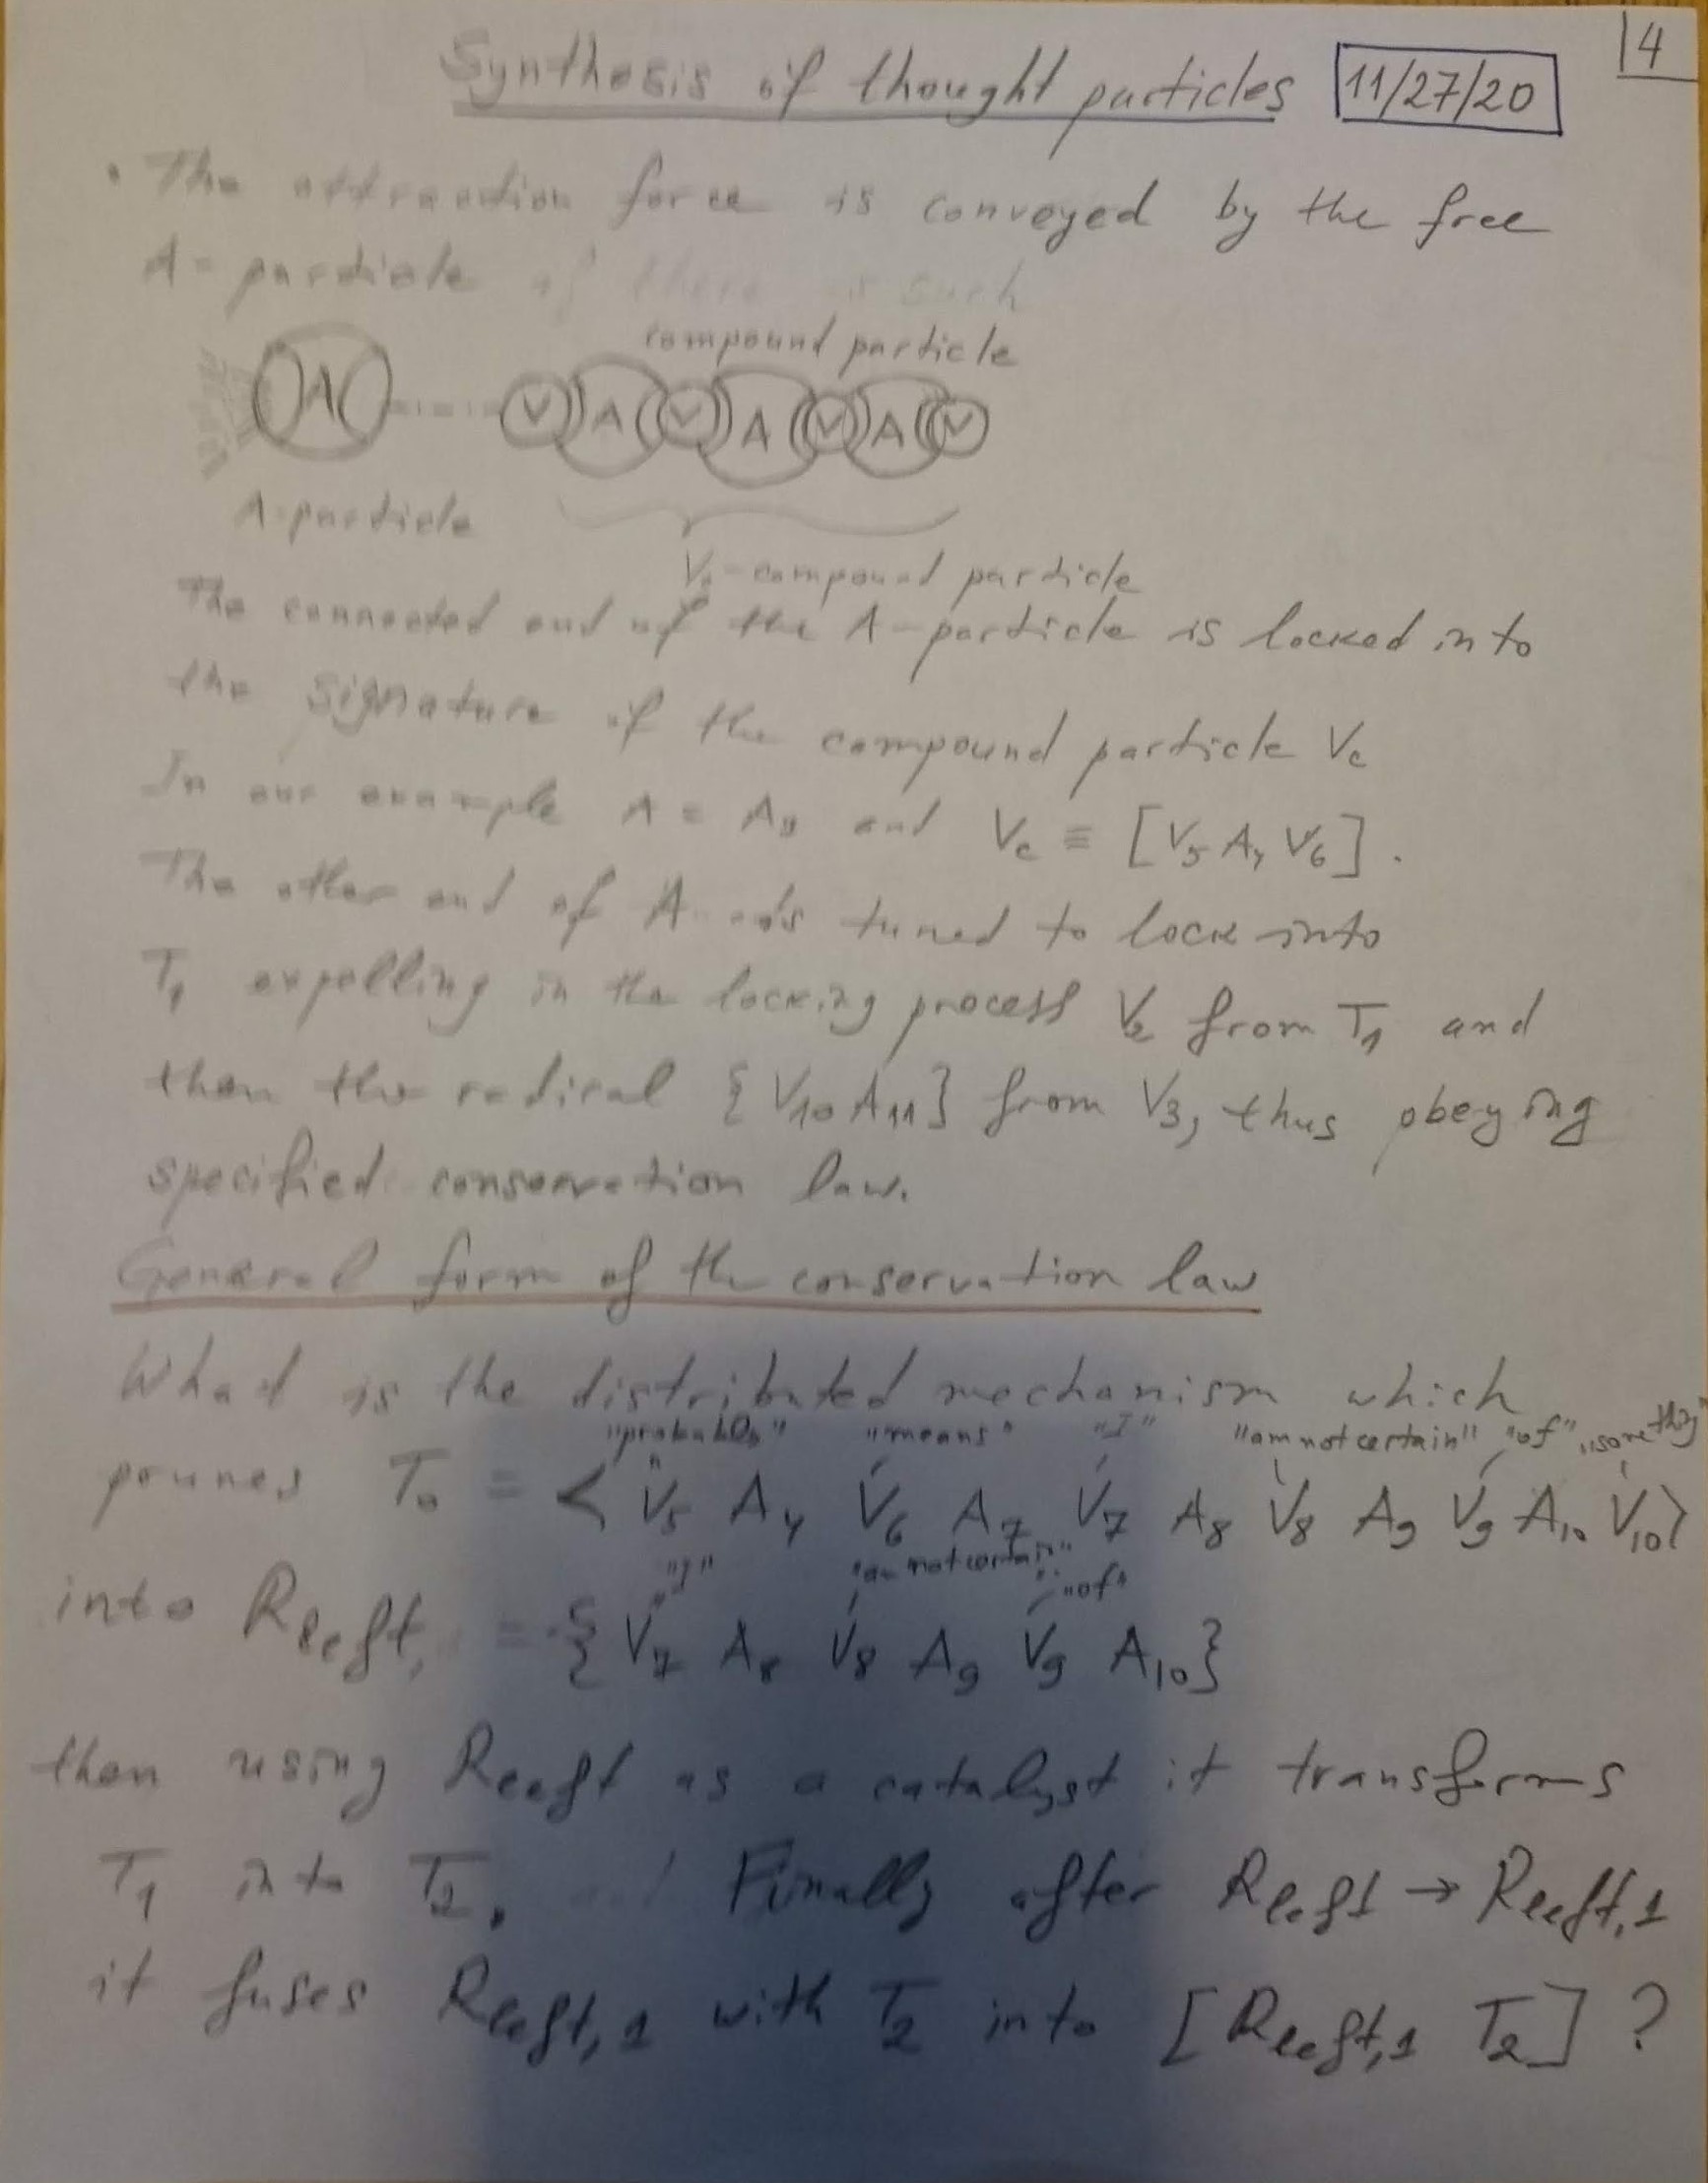 Synthesis of thought particles 11/27/20 |4
• The attraction force is conveyed by the free
A-particle if there is such
compound particle
A V A V A V A V
A-particle
Vc-compound particle
The connected end of the A-particle is locked into
the signature of the compound particle Vc
In our example A = A9 and Vc ≡ [V5 A4 V6].
The other end of A is tuned to lock into
T1 expelling in the locking process V2 from T1 and
then the radical {V10 A11} from V3, thus obeying
specified conservation law.
General form of the conservation law
What is the distributed mechanism which
"probably" "means" "I" "am not certain" "of" "something"
prunes T0 = < V5 A4 V6 A7 V7 A8 V8 A9 V9 A10 V10>
"I" "am not certain" "of"
into Rleft, = {V7 A8 V8 A9 V9 A10}
then using Rleft as a catalyst it transforms
T1 into T2. Finally after Rleft → Rleft,1
it fuses Rleft,1 with T2 into [Rleft,1 T2]?